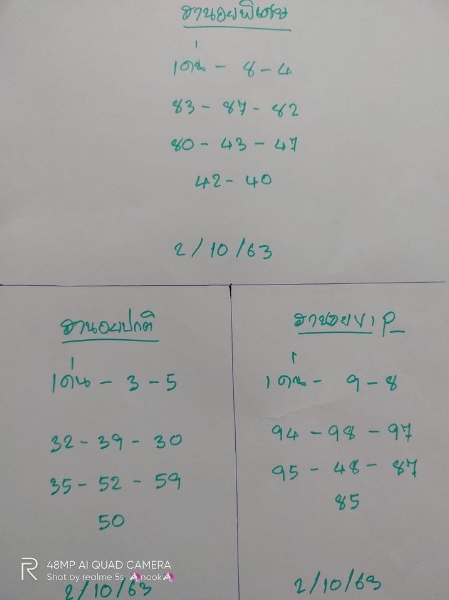 ฮานอยพิเศษ
เด่น - 8 - 4
83 - 87 - 82
80 - 43 - 47
42 - 40
2/10/63
ฮานอยปกติ
เด่น - 3 - 5
32 - 39 - 30
35 - 52 - 59
50
2/10/63
ฮานอยVIP
เด่น - 9 - 8
94 - 98 - 97
95 - 48 - 87
85
2/10/63
48MP AI QUAD CAMERA
Shot by realme 5s nook